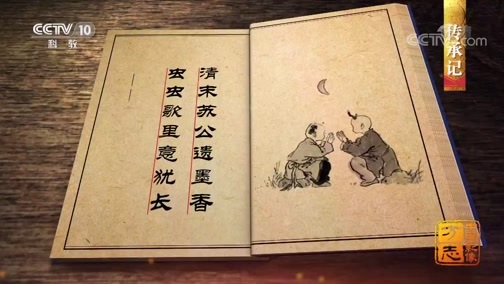 CCTV 10
科教
CCTV.com
传承记
清末苏公遗墨香
虫虫歌里意犹长
方志